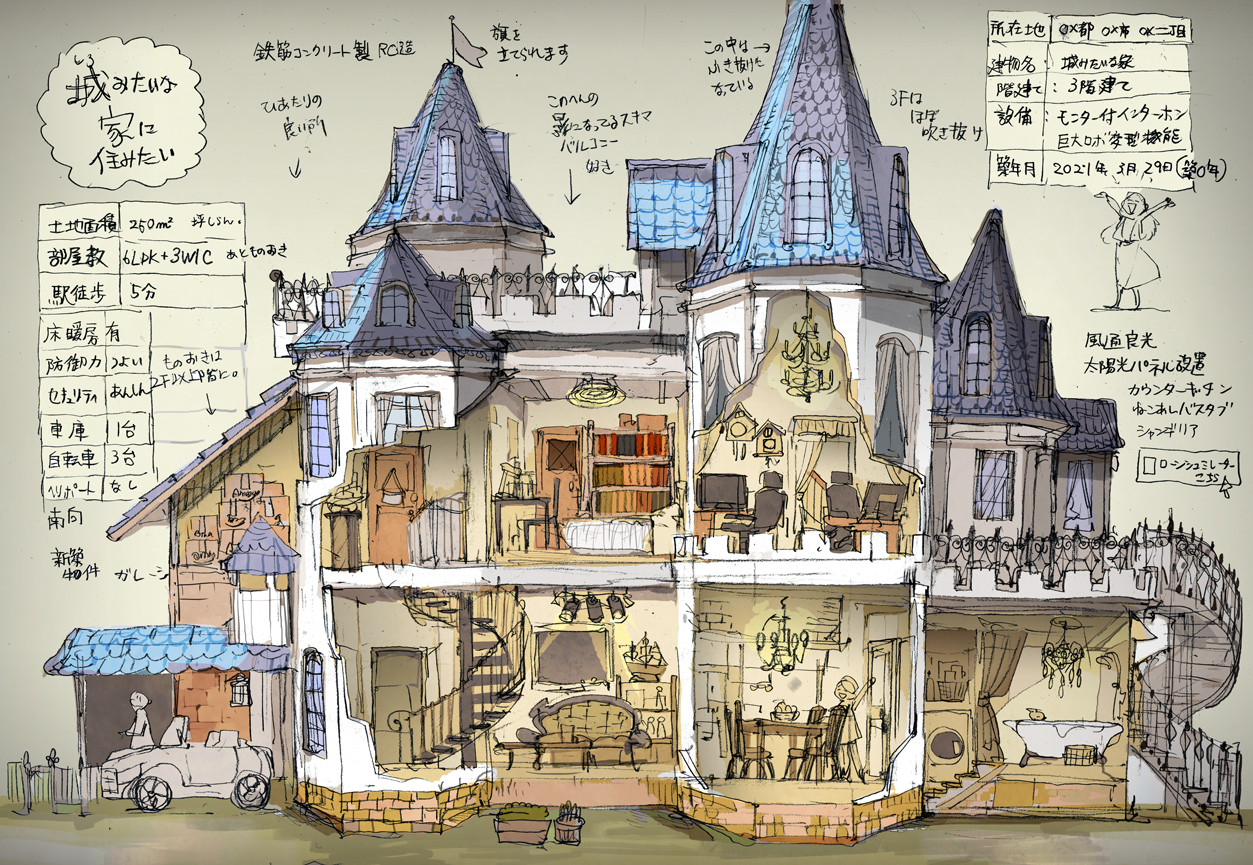 城みたいな
家に
住みたい
鉄筋コンクリート製 RC造
旗を
立てられます
ひあたりの
良い所
このへんの
影になってるスキマ
バルコニー
好き
この中は→
ふき抜けた
なっている
3Fは
ほぼ
吹き抜け
所在地 ○×都 ○×市 ○×二丁目
建物名 : 城みたいな家
階建て : 3階建て
設備 : モニター付インターホン
巨大ロボ変型機能
築年月 2021年 3月 29日(築0年)
土地面積 250m² 坪しらん。
部屋数 6LDK+3WIC あとものおき
駅徒歩 5分
床暖房 有
防御力 つよい
セキュリティ あんしん
車庫 1台
自転車 3台
ヘリポート なし
南向
新築
物件
ガレージ
ものおきは
2F以上部に。
風通良光
太陽光パネル設置
カウンターキッチン
ねこあしバスタブ
シャンデリア
ローンシュミレーター
こちら
Amazon